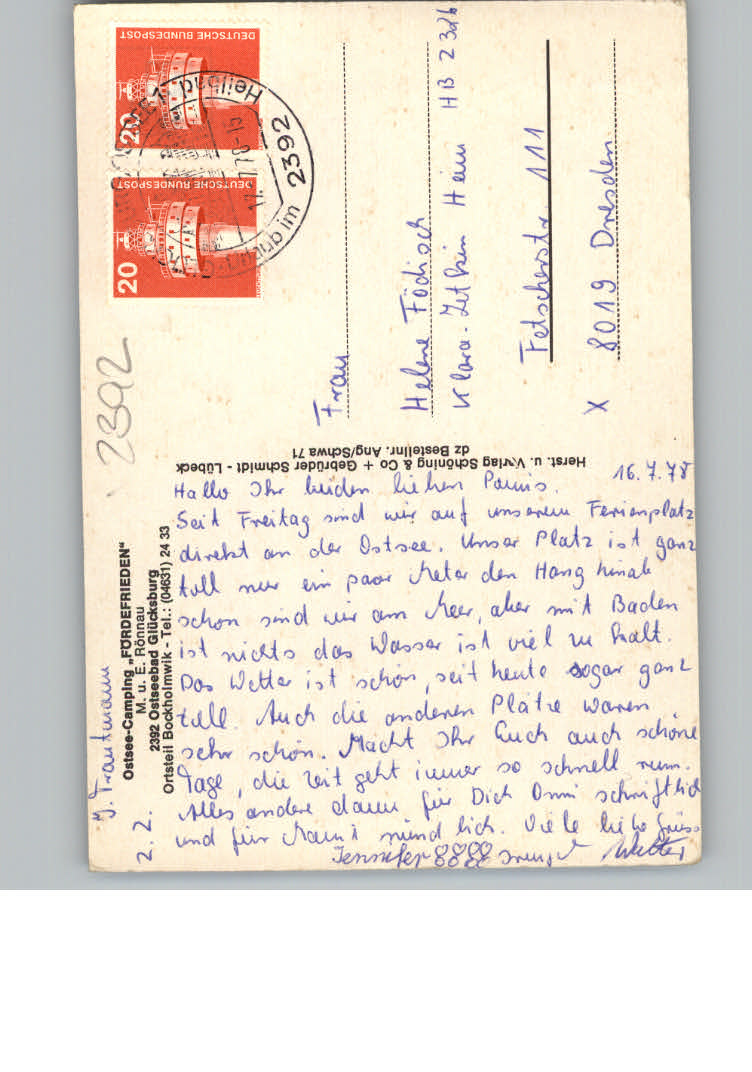 DEUTSCHE BUNDESPOST
20
DEUTSCHE BUNDESPOST
20
2392
Urlaub im
Heilbad
2392
Frau
Helene Födisch
Klara-Zetkin Heim HB Z 32b
Fetscherstr 111
X 8019 Dresden
Herst. u. Verlag Schöning & Co + Gebrüder Schmidt - Lübeck
dz Bestellnr. Ang/Schwa 71
J. Trautmann
z. Z.
Ostsee-Camping „FÖRDEFRIEDEN“
M. u. E. Rönnau
2392 Ostseebad Glücksburg
Ortsteil Bockholmwik - Tel.: (04631) 24 33
16.7.78
Hallo Ihr beiden lieben
Seit Freitag sind wir auf unserem Ferienplatz
direkt an der Ostsee. Unser Platz ist ganz
toll nur ein paar Meter den Hang hinab
schon sind wir am Meer, aber mit Baden
ist nichts das Wasser ist viel zu kalt.
Das Wetter ist schön, seit heute sogar ganz
toll. Auch die anderen Plätze waren
sehr schön. Macht Ihr Euch auch schöne
Tage, die Zeit geht immer so schnell rum.
Alles andere dann für Dich Omi schriftlich
und für Mami mündlich. Viele liebe Grüsse
Jennifer Walter